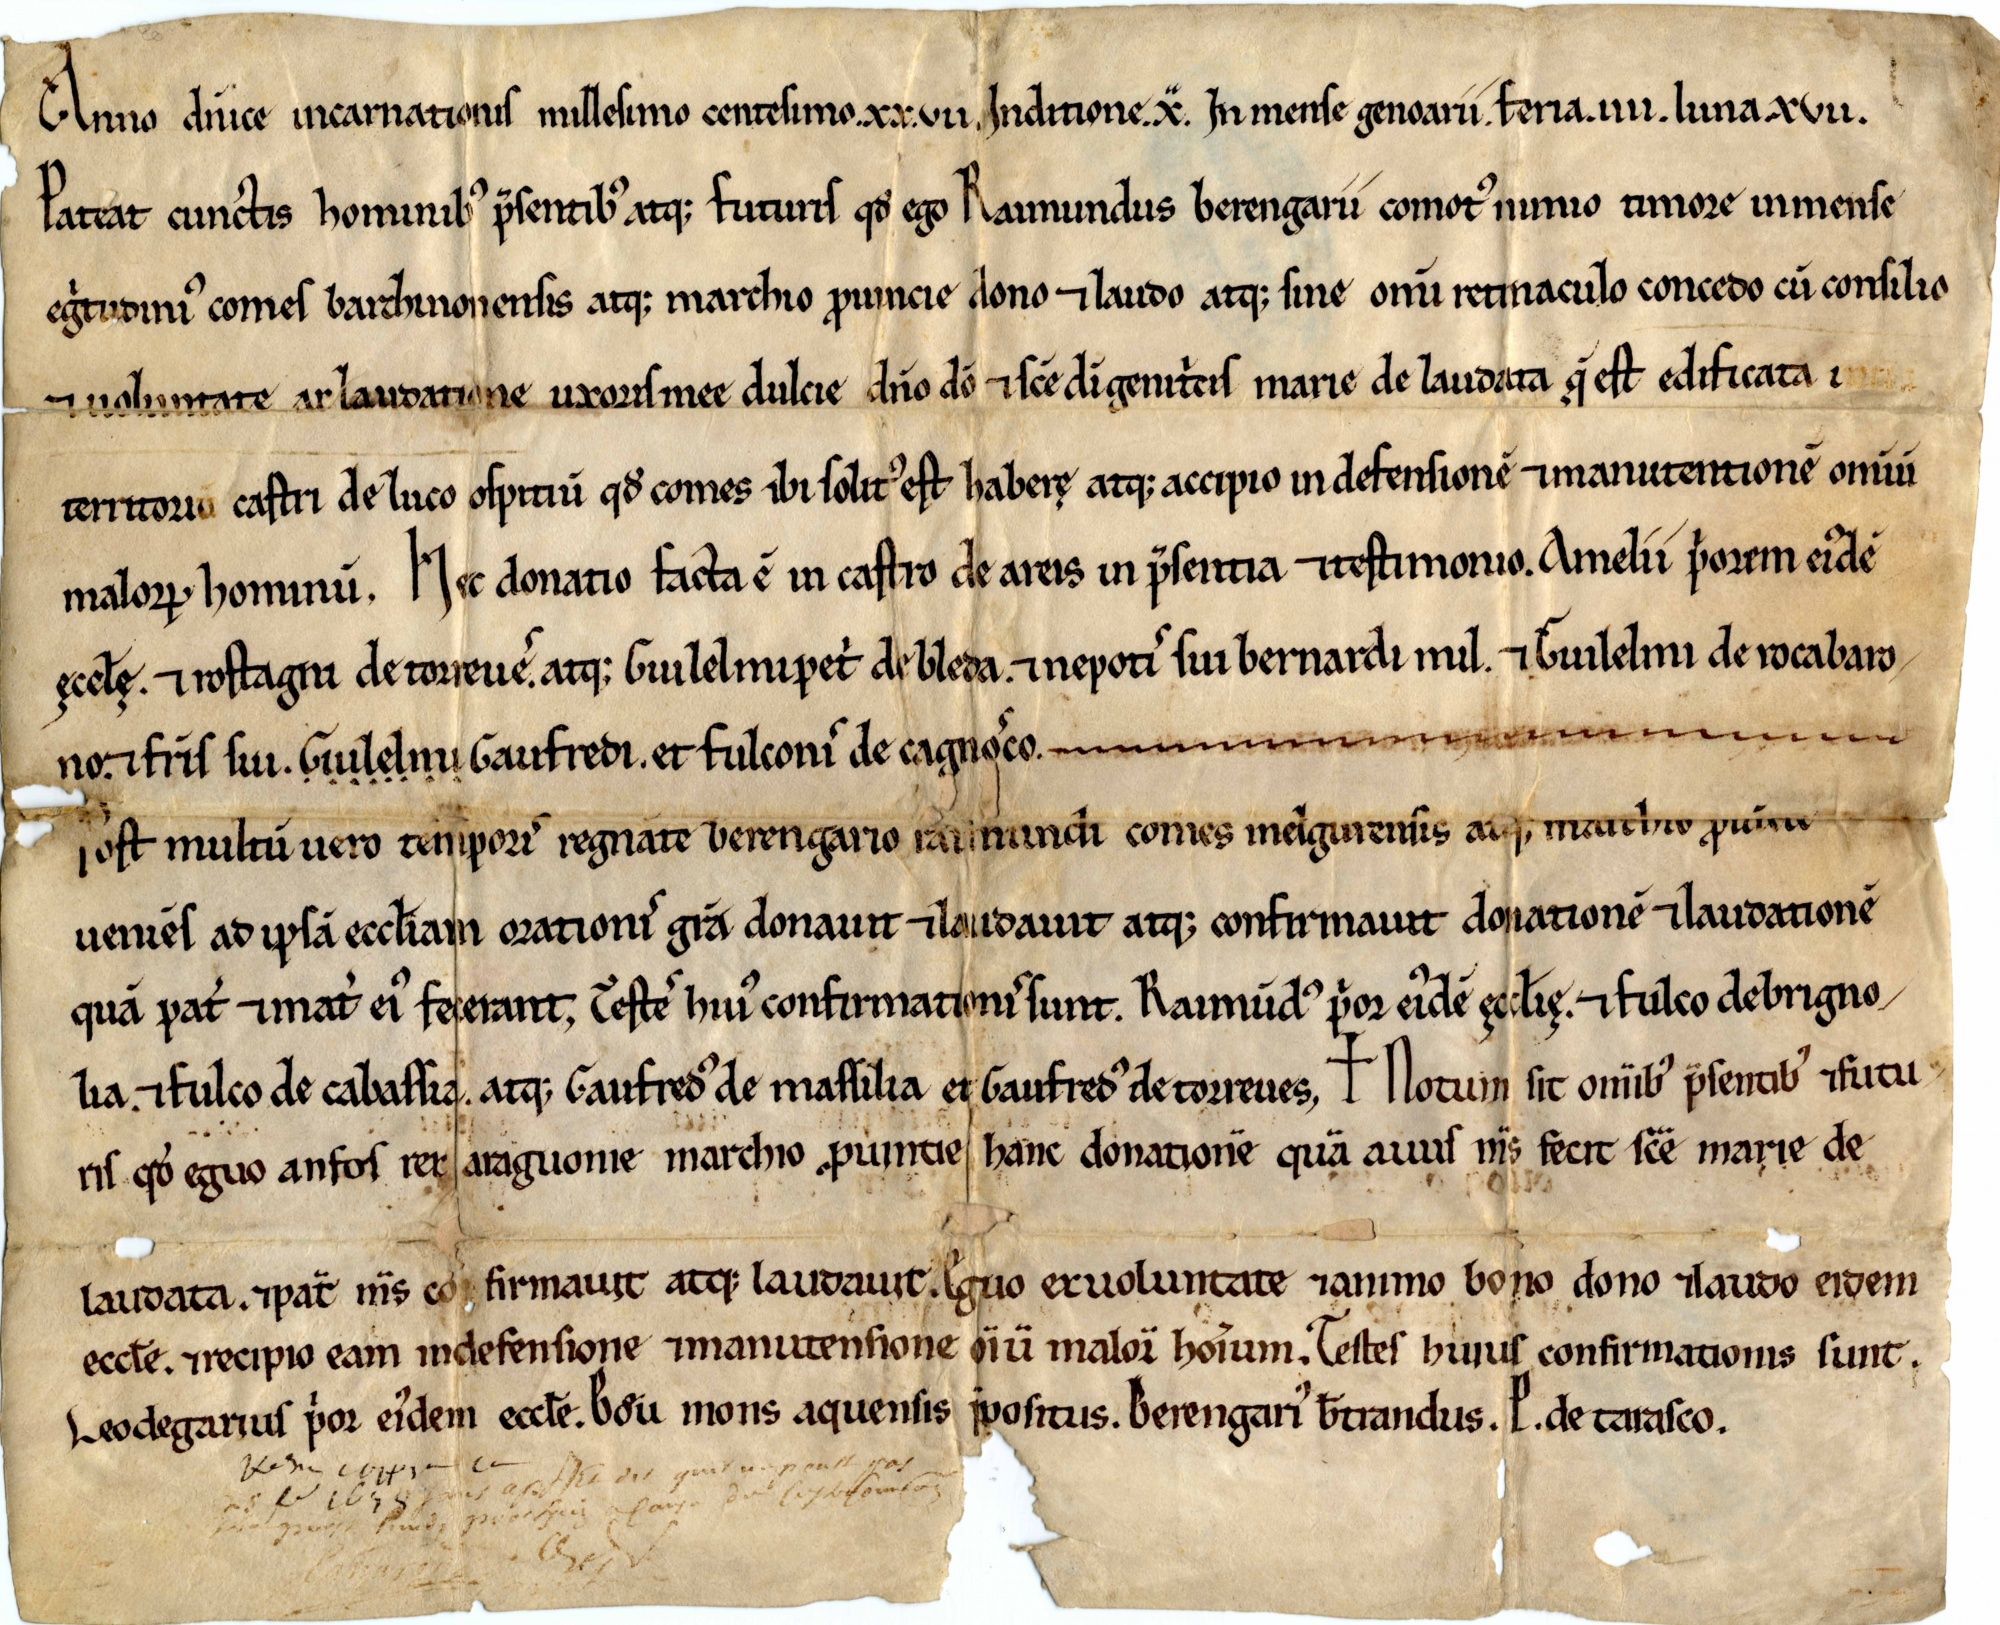 Anno dn̄ice incarnationis millesimo centesimo.xx.vii. Inditione.x̄. In mense genoarii. feria.iiii. luna.xvii.
Pateat cunctis hominibꝰ p̄sentibꝰ atq; futuris qđ ego Raimundus berengarii comotꝰ nimio timore inmense
egͥtudinꝭ comes barchinonensis atq; marchio ꝓuincie dono ⁊ laudo atq; sine om̄i retinaculo concedo cū consilio
⁊ uoluntate ac laudatione uxoris mee dulcie dn̄o dō ⁊ scē di genitͥcis marie de laudata q̄ est edificata i
territorio castri de luco ospitiū qđ comes ibi solitꝰ est haberę atq; accipio in defensionē ⁊ manutentionē omiū
maloꝝ hominū. Hec donatio facta ē in castro de areis in p̄sentia ⁊ testimonio. Amelii pͥorem eiꝰdē
ęcclę. ⁊ rostagni de torreueˢ. atq; Guilelmi pet͛ de bleda. ⁊ nepotiˢ sui bernardi mil. ⁊ Guilelmi de rocabaro
no. ⁊ fr̄is sui. Guilelmi Gaufredi. et fulconiˢ de cagnoˢco.
Post multū uero temporiˢ regnāte berengario raimundi comes melguriensis atq; marchio ꝓuincie
ueniēs ad ipsā eccl̄iam orationiˢ gr̄a donauit ⁊ laudauit atq; confirmauit donationē ⁊ laudationē
quā pat͛ ⁊ mat͛ eiꝰ fecerant, Testeˢ huiꝰ confirmationiˢ sunt. Raimūdꝰ pͥor eiꝰdē ęccl̄ię. ⁊ fulco de brigno
lia. ⁊ fulco de cabassia. atq; Gaufredꝰ de massilia et Gaufredꝰ de torreues, † Notum sit om̄ibꝰ p̄sentibꝰ ⁊ futu
ris qđ eguo anfos rex araguonie marchio ꝓuintie hanc donationē quā auus nr̄s fecit scē marie de
laudata. ⁊ pat͛ nr̄s confirmauit atq; laudauit. Eguo ex uoluntate ⁊ animo bono dono ⁊ laudo eidem
eccl̄e. ⁊ recipio eam in defensione ⁊ manutensione om̄iū malor̄ hoīum. Testes huius confirmationis sunt.
Leodegarius pͥor eiꝰdem eccl̄e. mons aquensis p̄positus. Berengariꝰ b̄trandus. P. de tarasco.